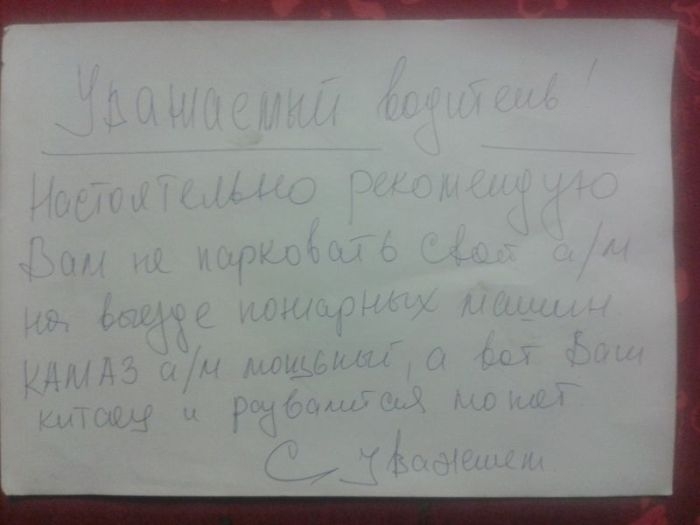 Уважаемый водитель!
Настоятельно рекомендую
Вам не парковать свой а/м
на выезде пожарных машин.
КАМАЗ а/м мощьный, а вот Ваш
китаец и развалится может.
С уважением